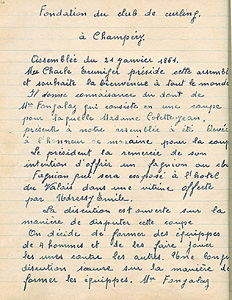 Fondation du club de curling.
à Champéry.
Assemblée du 21 janvier 1961.
Mr Charles préside cette assemblée
et souhaite la bienvenue à tout le monde
Il donne connaissance du dont de
Mr Fonjalaz qui consiste en une coupe
pour laquelle Madame
présente à notre assemblée a été
à l'honneur de pour la coupe
Le président la remercie de son
intention d'offrir un fagnion au club
Fagnion qui sera exposé à l'hotel
du Valais dans une vitrine offerte
par Emile.
La discution est ouverte sur la
manière de disputer cette coupe.
On décide de former des équippes
de 4 hommes et de les faire jouer
les unes contre les autres. Une longue
discution s'ouvre sur la manière de
former les équippes. Mr Fonjalaz